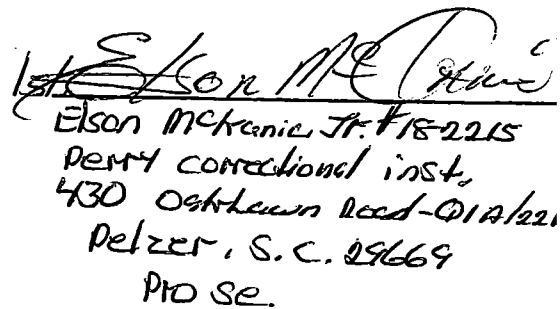 1st Elson Mc
Elson McKanic, Jr. #182215
Perry correctional inst.
430 Oaklawn Road-Q1A/221
Pelzer, S.C. 29669
Pro se.